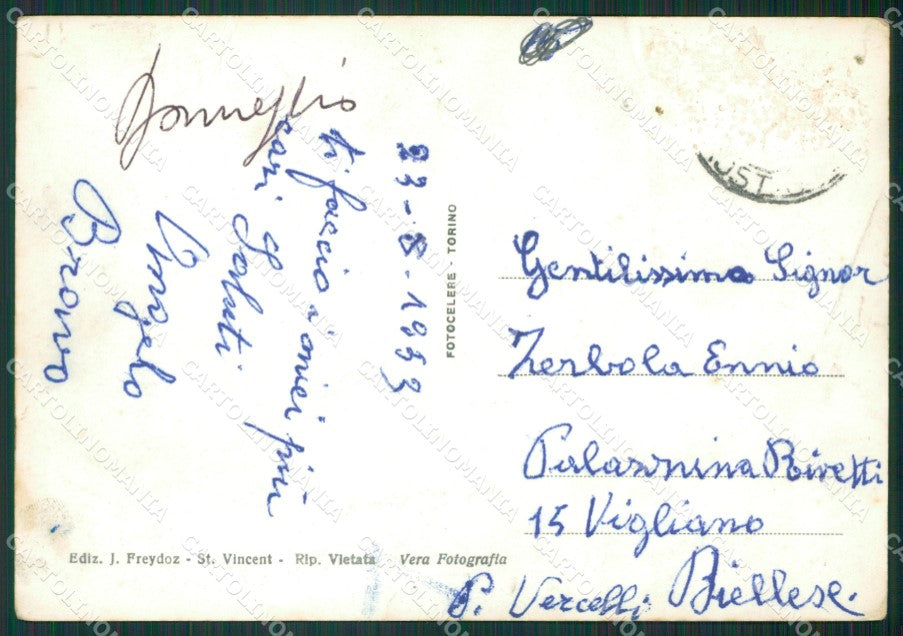 23-8-1953
ti faccio i miei più
cari Saluti.
Angelo
Bravo
FOTOCELERE - TORINO
Gentilissimo Signor
Zerbola Ennio
Palazzina Rivetti
15 Vigliano
Biellese.
P. Vercelli
Ediz. J. Freydoz - St. Vincent - Rip. Vietata Vera Fotografia
CARTOLINOMANIA